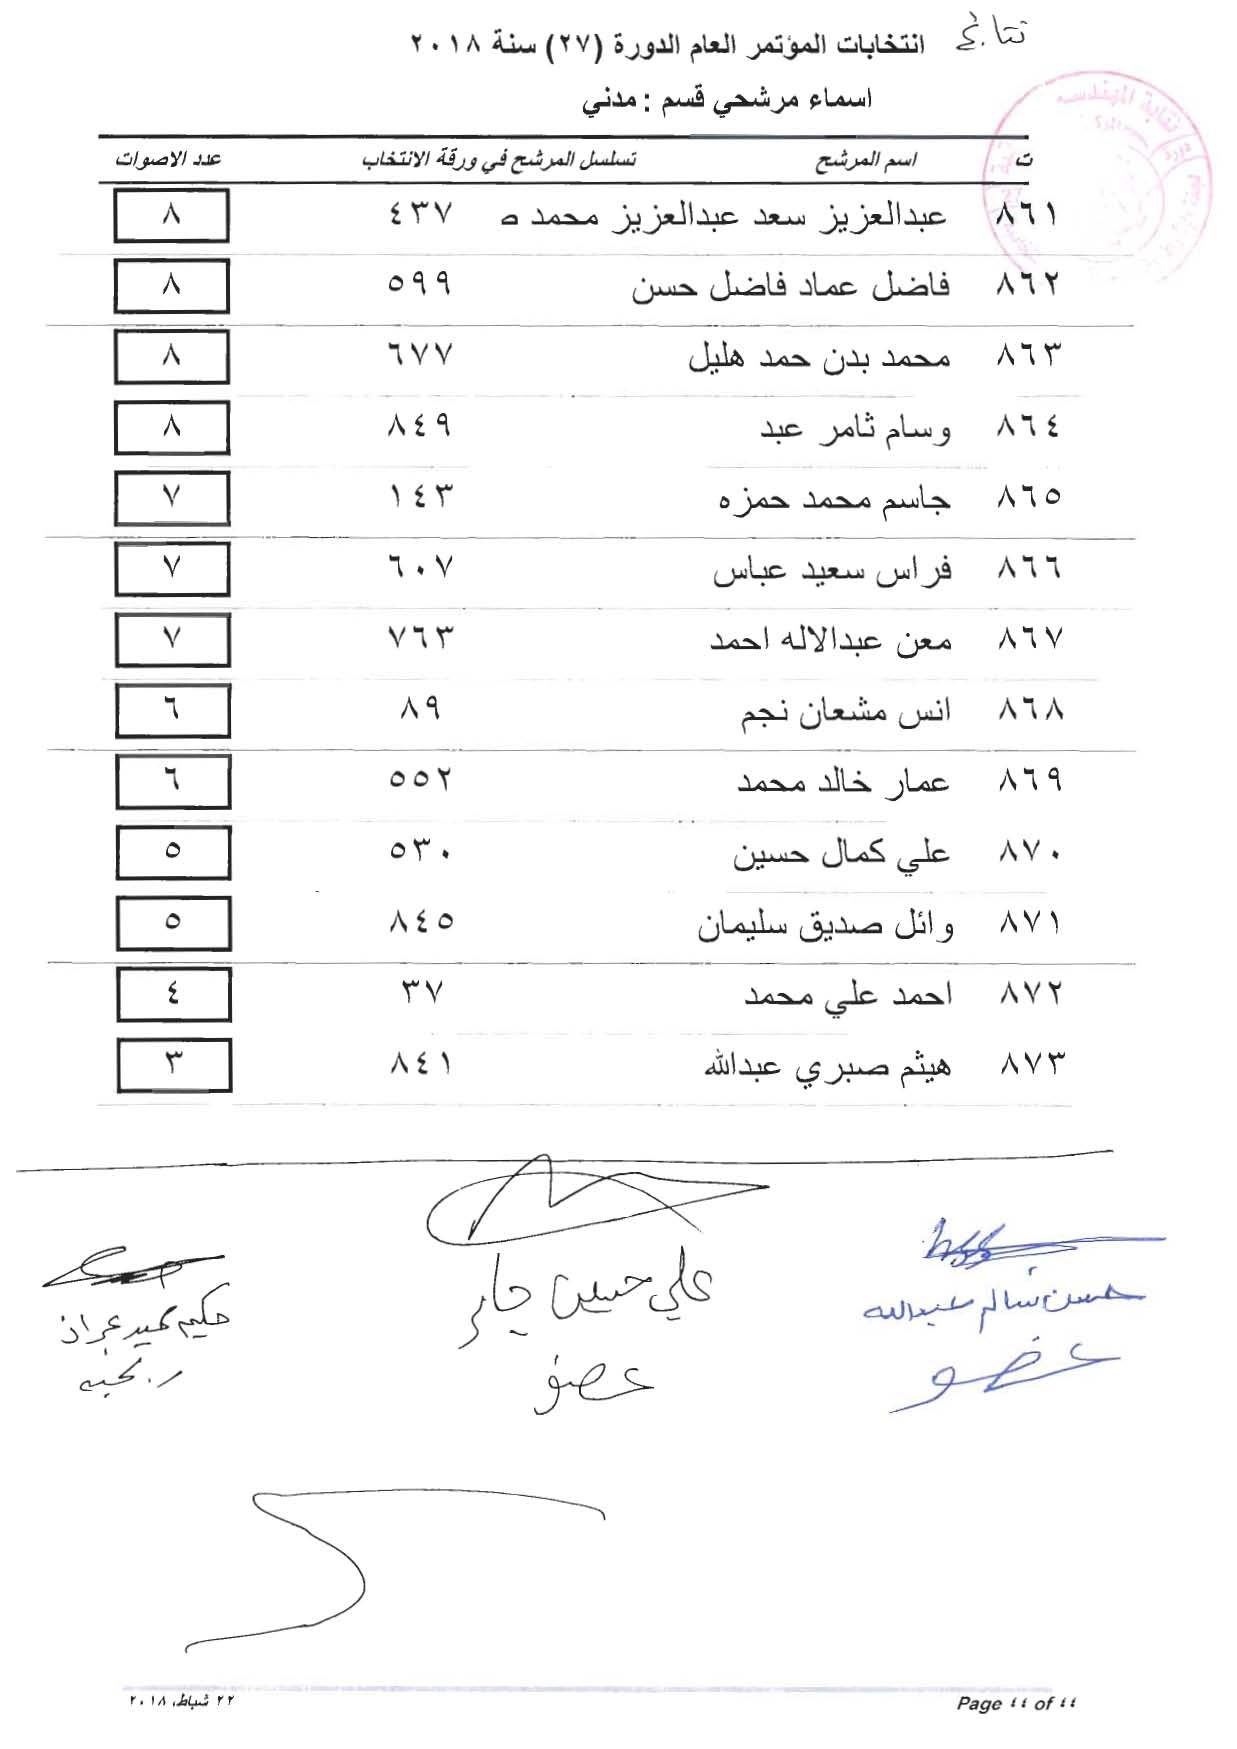 نتائج انتخابات المؤتمر العام الدورة (٢٧) سنة ٢٠١٨
اسماء مرشحي قسم : مدني
ت اسم المرشح تسلسل المرشح في ورقة الانتخاب عدد الاصوات
٨٦١ عبدالعزيز سعد عبدالعزيز محمد ص ٤٣٧ ٨
٨٦٢ فاضل عماد فاضل حسن ٥٩٩ ٨
٨٦٣ محمد بدن حمد هليل ٦٧٧ ٨
٨٦٤ وسام ثامر عبد ٨٤٩ ٨
٨٦٥ جاسم محمد حمزه ١٤٣ ٧
٨٦٦ فراس سعيد عباس ٦٠٧ ٧
٨٦٧ معن عبدالاله احمد ٧٦٣ ٧
٨٦٨ انس مشعان نجم ٨٩ ٦
٨٦٩ عمار خالد محمد ٥٥٢ ٦
٨٧٠ علي كمال حسين ٥٣٠ ٥
٨٧١ وائل صديق سليمان ٨٤٥ ٥
٨٧٢ احمد علي محمد ٣٧ ٤
٨٧٣ هيثم صبري عبدالله ٨٤١ ٣
حسن سالم عبدالله
عضو
علي حسين جابر
عضو
حكيم
ر. لجنه
Page ٤٤ of ٤٤
٢٢ شباط، ٢٠١٨
نقابة المهندسين